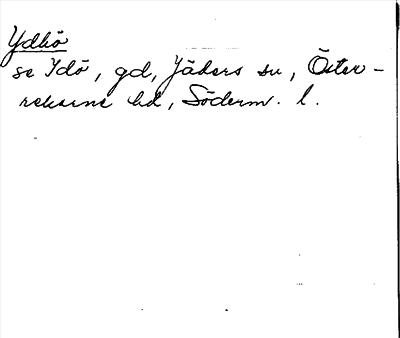 Ydhö
se Idö, gd, Jäders sn, Öster-
rekarne hd, Söderm. l.